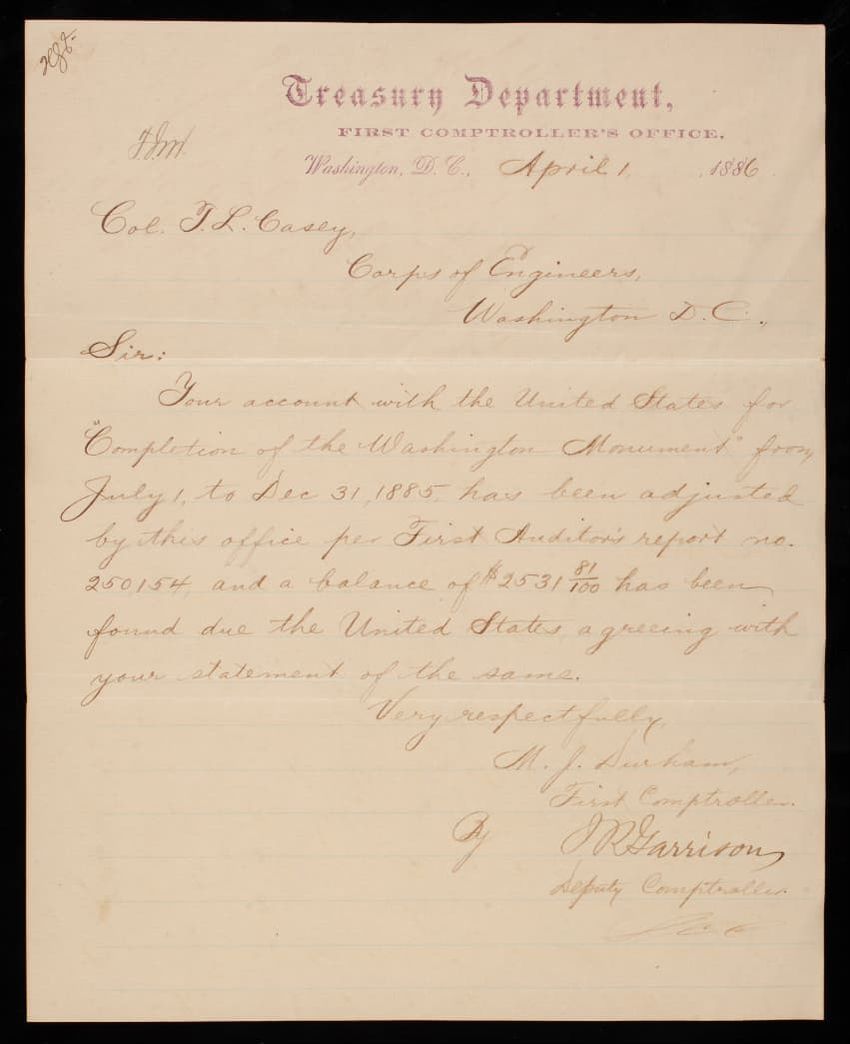 Treasury Department,
FIRST COMPTROLLER'S OFFICE,
Washington, D. C., April 1, 1886.
Col. T. L. Casey,
Corps of Engineers,
Washington D. C.,
Sir:
Your account with the United States for
"Completion of the Washington Monument" from
July 1, to Dec 31, 1885, has been adjusted
by this office per First Auditor's report no.
250,154, and a balance of $2531 81/100 has been
found due the United States, agreeing with
your statement of the same.
Very respectfully,
M. J. Durham,
First Comptroller.
By J R Garrison,
Deputy Comptroller.